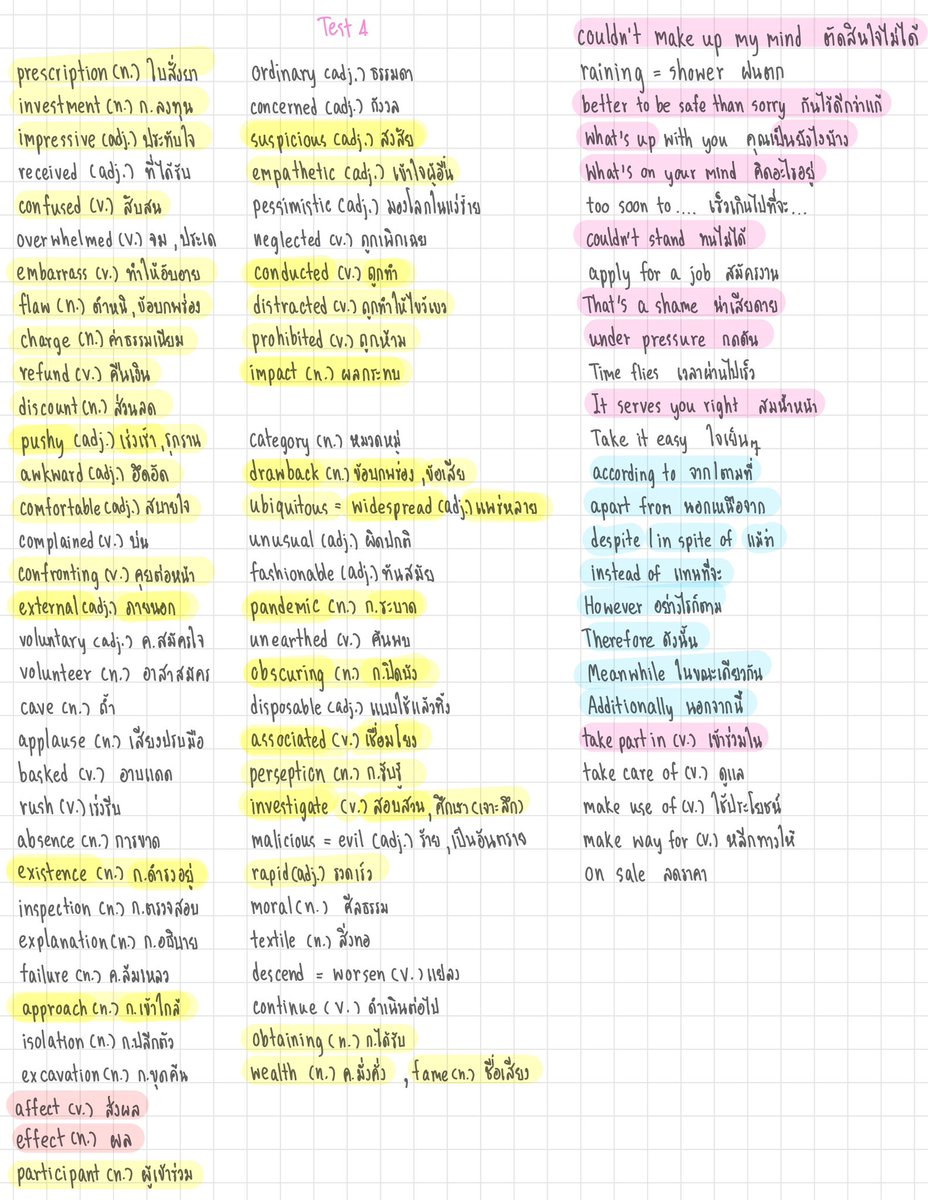 Test 4
prescription (n.) ใบสั่งยา
investment (n.) ก.ลงทุน
impressive (adj.) ประทับใจ
received (adj.) ที่ได้รับ
confused (v.) สับสน
overwhelmed (v.) จม, ประเด
embarrass (v.) ทำให้อับอาย
flaw (n.) ตำหนิ, ข้อบกพร่อง
charge (n.) ค่าธรรมเนียม
refund (v.) คืนเงิน
discount (n.) ส่วนลด
pushy (adj.) เร่งเร้า, รุกราน
awkward (adj.) อึดอัด
comfortable (adj.) สบายใจ
complained (v.) บ่น
confronting (v.) คุยต่อหน้า
external (adj.) ภายนอก
voluntary (adj.) ค.สมัครใจ
volunteer (n.) อาสาสมัคร
cave (n.) ถ้ำ
applause (n.) เสียงปรบมือ
basked (v.) อาบแดด
rush (v.) เร่งรีบ
absence (n.) การขาด
existence (n.) ก.ดำรงอยู่
inspection (n.) ก.ตรวจสอบ
explanation (n.) ก.อธิบาย
failure (n.) ค.ล้มเหลว
approach (n.) ก.เข้าใกล้
isolation (n.) ก.ปลีกตัว
excavation (n.) ก.ขุดค้น
affect (v.) ส่งผล
effect (n.) ผล
participant (n.) ผู้เข้าร่วม
ordinary (adj.) ธรรมดา
concerned (adj.) กังวล
suspicious (adj.) สงสัย
empathetic (adj.) เข้าใจผู้อื่น
pessimistic (adj.) มองโลกในแง่ร้าย
neglected (v.) ถูกเพิกเฉย
conducted (v.) ถูกทำ
distracted (v.) ถูกทำให้ไขว้เขว
prohibited (v.) ถูกห้าม
impact (n.) ผลกระทบ
category (n.) หมวดหมู่
drawback (n.) ข้อบกพร่อง, ข้อเสีย
ubiquitous = widespread (adj.) แพร่หลาย
unusual (adj.) ผิดปกติ
fashionable (adj.) ทันสมัย
pandemic (n.) ก.ระบาด
unearthed (v.) ค้นพบ
obscuring (n.) ก.ปิดบัง
disposable (adj.) แบบใช้แล้วทิ้ง
associated (v.) เชื่อมโยง
perseption (n.) ก.รับรู้
investigate (v.) สอบสวน, ศึกษา (เจาะลึก)
malicious = evil (adj.) ร้าย, เป็นอันทราย
rapid (adj.) รวดเร็ว
moral (n.) ศีลธรรม
textile (n.) สิ่งทอ
descend = worsen (v.) แย่ลง
continue (v.) ดำเนินต่อไป
obtaining (n.) ก.ได้รับ
wealth (n.) ค.มั่งคั่ง, fame (n.) ชื่อเสียง
couldn't make up my mind ตัดสินใจไม่ได้
raining = shower ฝนตก
better to be safe than sorry กันไว้ดีกว่าแก้
What's up with you คุณเป็นยังไงบ้าง
What's on your mind คิดอะไรอยู่
too soon to .... เร็วเกินไปที่จะ...
couldn't stand ทนไม่ได้
apply for a job สมัครงาน
That's a shame น่าเสียดาย
under pressure กดดัน
Time flies เวลาผ่านไปเร็ว
It serves you right สมน้ำหน้า
Take it easy ใจเย็นๆ
according to จาก/ตามที่
apart from นอกเหนือจาก
despite / in spite of แม้ว่า
instead of แทนที่จะ
However อย่างไรก็ตาม
Therefore ดังนั้น
Meanwhile ในขณะเดียวกัน
Additionally นอกจากนี้
take part in (v.) เข้าร่วมใน
take care of (v.) ดูแล
make use of (v.) ใช้ประโยชน์
make way for (v.) หลีกทางให้
on sale ลดราคา